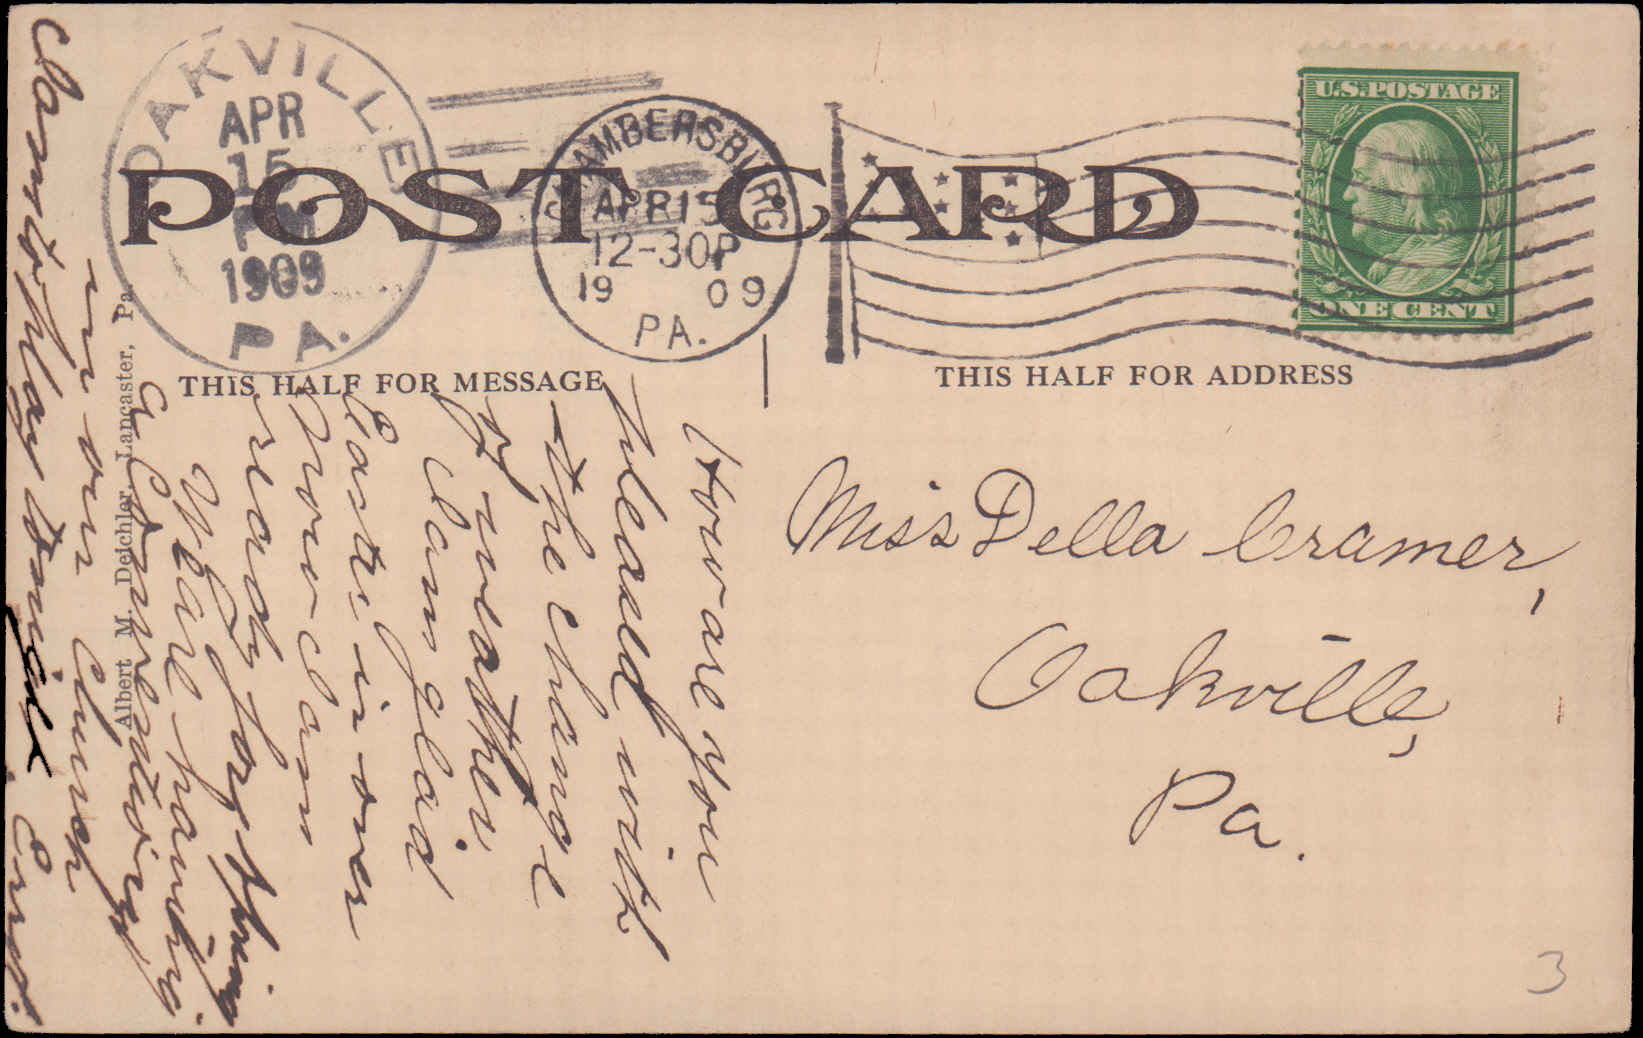 OAKVILLE
APR
15
PM
1909
PA.
CHAMBERSBURG
APR 15
12-30P
19 09
PA.
U.S.POSTAGE
ONE CENT
POST CARD
THIS HALF FOR MESSAGE
THIS HALF FOR ADDRESS
How are you
pleased with
the change
of weather.
I am glad
Easter is over
now I am
ready for spring
We are having
a
in our church
I am to play
Albert M. Deichler, Lancaster, Pa.
Miss Della Cramer,
Oakville,
Pa.
3